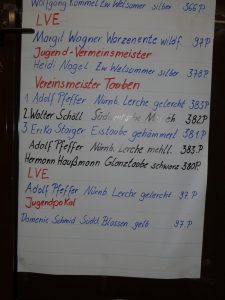 Wolfgang Kümmel Zw Welsumer silber 366P
LVE
Margit Wagner Warzenente wildf. 97.P
Jugend-Vermeinsmeister
Heidi Nagel Zw Welsumer silber 378P
Vereinsmeister Tauben
1 Adolf Pfeffer Nürnb. Lerche gelercht 383P
2. Walter Schöll 382P
3 Erika Staiger Eistaube gehämmert 381P
Adolf Pfeffer Nürnb. Lerche mehll. 383.P
Hermann Haußmann Glanztaube schwarz 380P.
LVE
Adolf Pfeffer Nürnb. Lerche gelercht 97.P
Jugendpokal
Domenic Schmid Südd. Blassen gelb 97.P